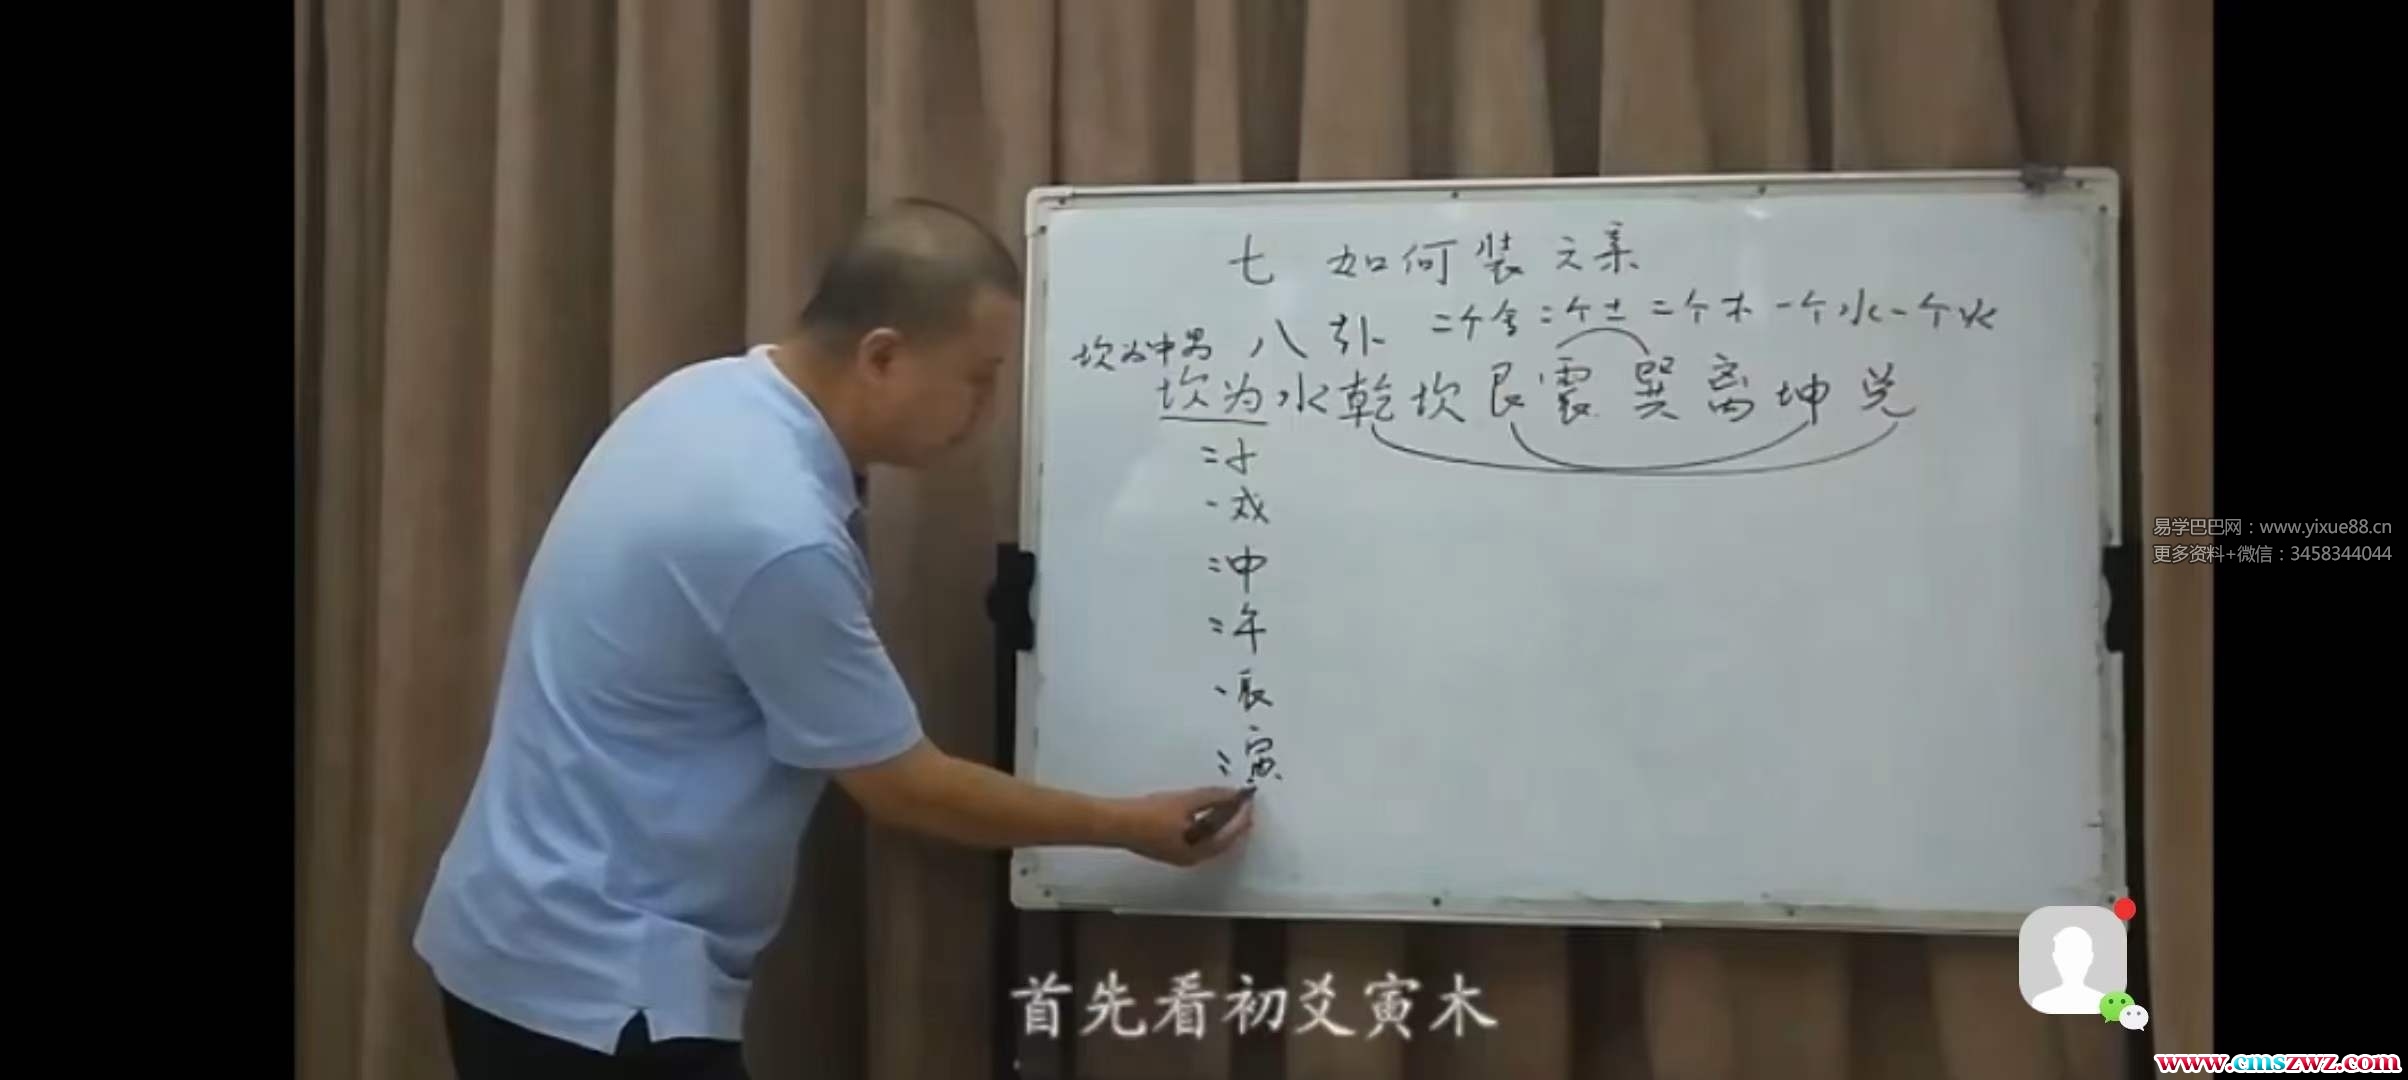 七 如何装六亲
八卦 二个金 二个土 二个木 一个水 一个火
坎为中男
坎为水 乾 坎 艮 震 巽 离 坤 兑
子
戌
申
午
辰
寅
首先看初爻寅木
易学巴巴网：www.yixue88.cn
更多资料+微信：3458344044
www.cmszwz.com